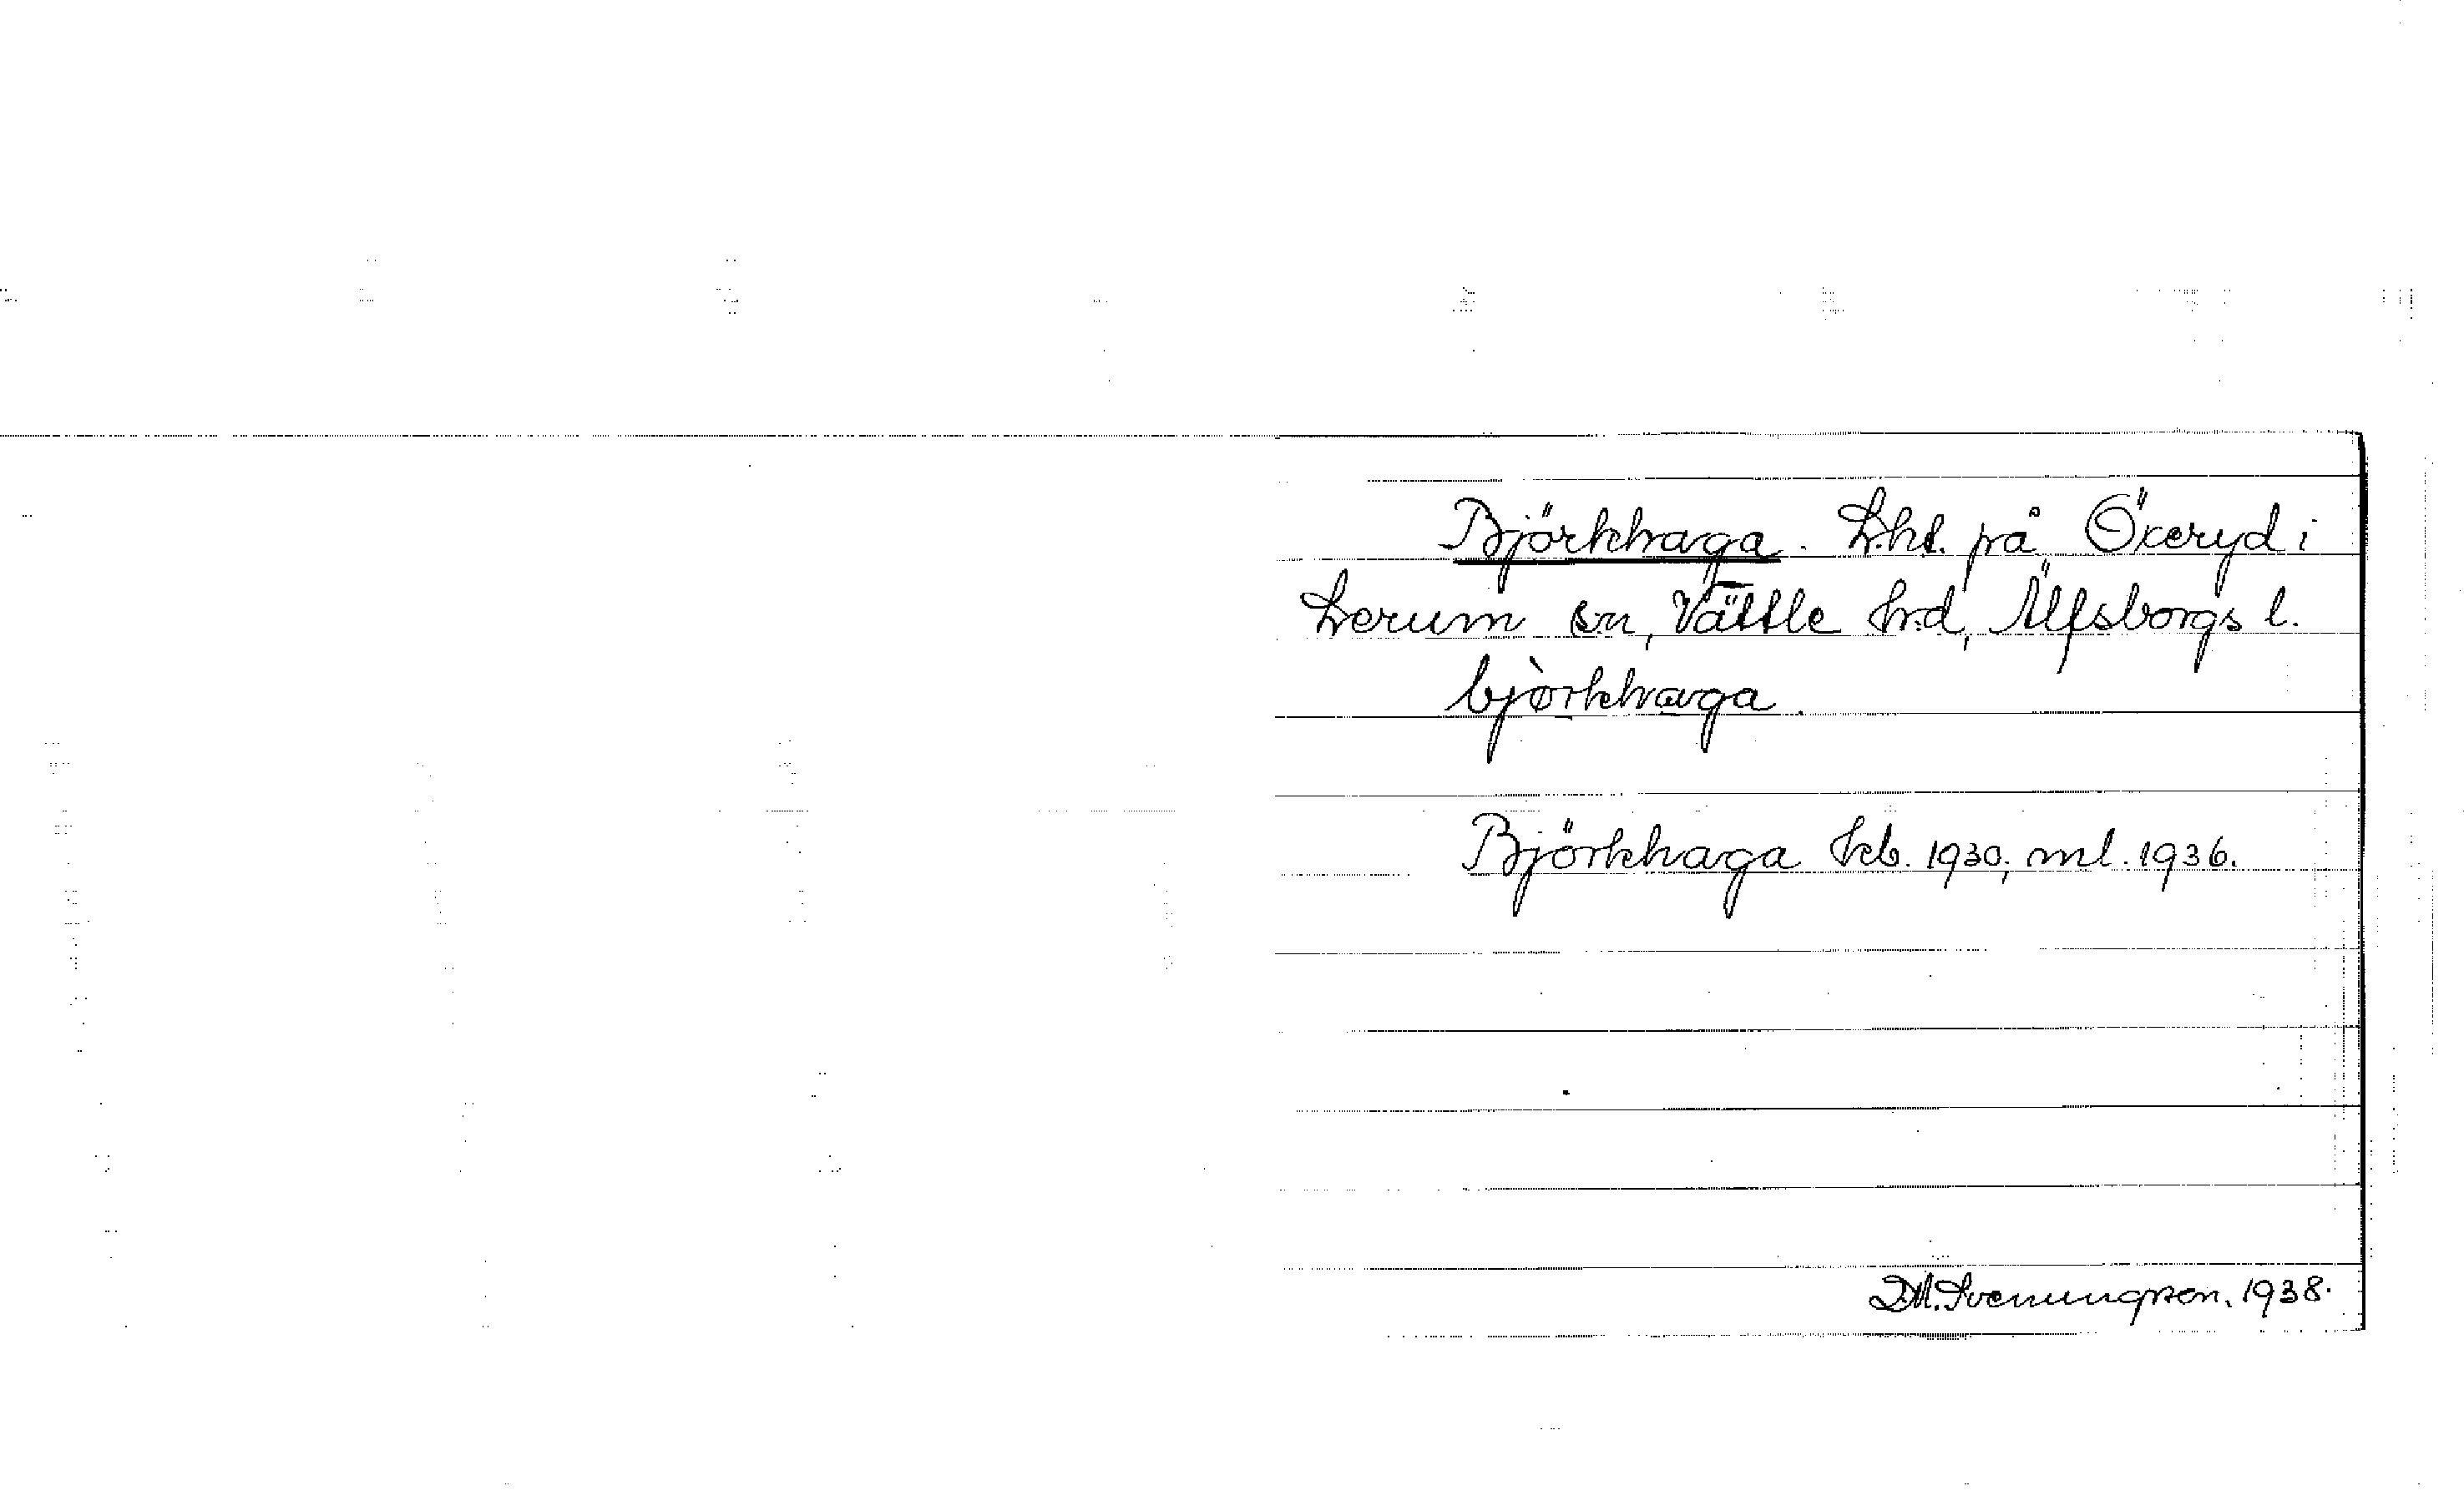 Björkhaga. Lht. på Öxeryd i
Lerum sn, Vättle hd, Älfsborgs l.
bjòrkhaga.
Björkhaga hcb. 1930, ml. 1936.
D.M. Svenungsson. 1938.